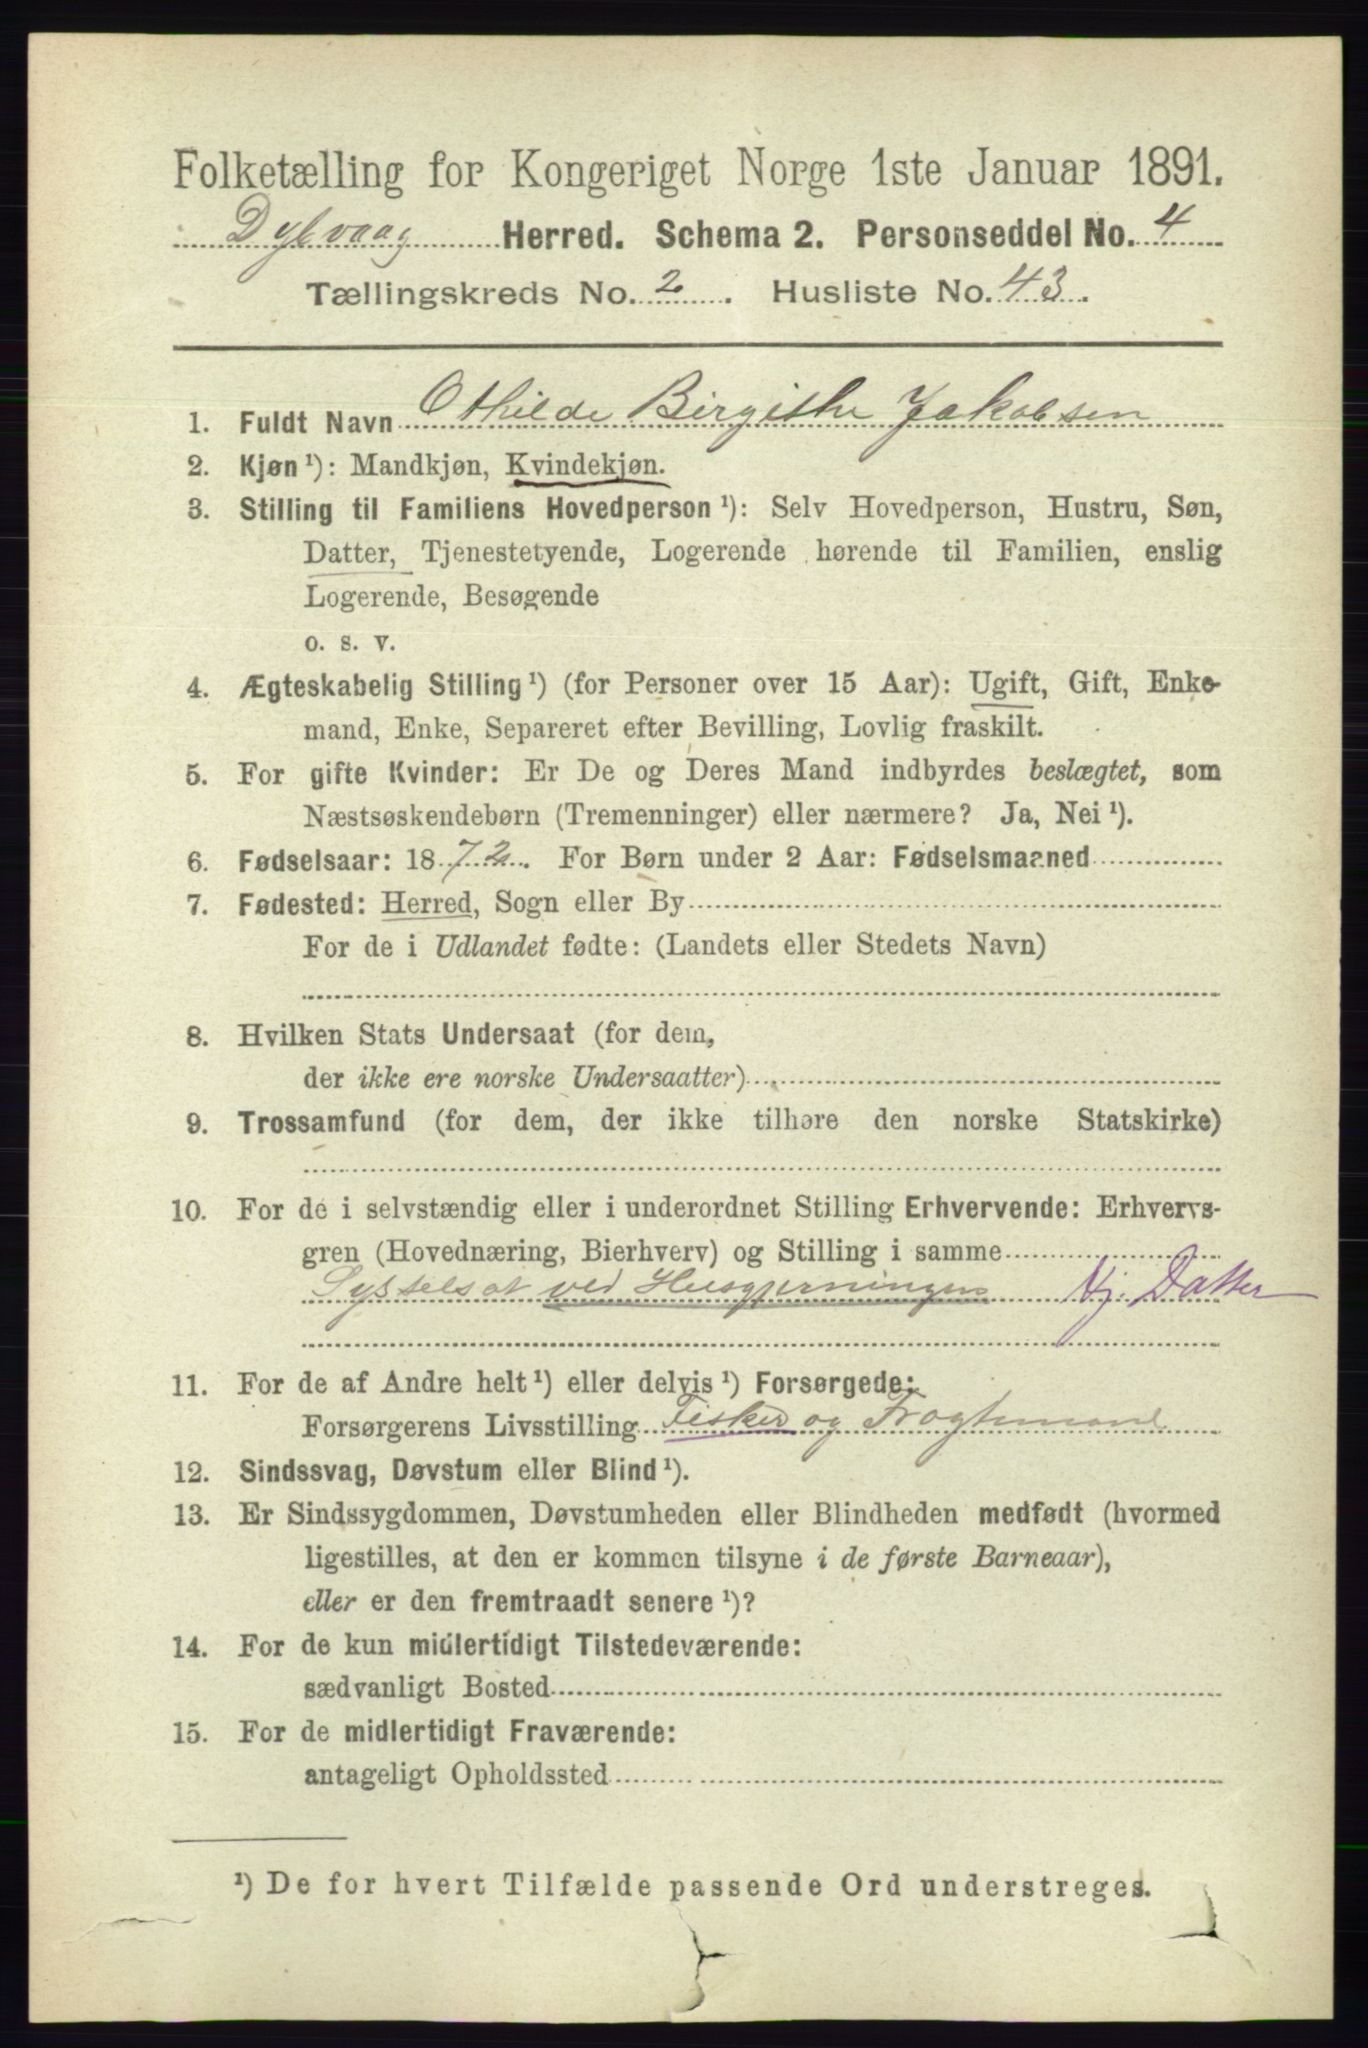 Folketælling for Kongeriget Norge 1ste Januar 1891.
Dybvaag Herred. Schema 2. Personseddel No. 4
Tællingskreds No. 2. Husliste No. 43.
1. Fuldt Navn Othilde Birgithe Jakobsen
2. Kjøn ¹): Mandkjøn, Kvindekjøn.
3. Stilling til Familiens Hovedperson ¹): Selv Hovedperson, Hustru, Søn,
Datter, Tjenestetyende, Logerende hørende til Familien, enslig
Logerende, Besøgende
o. s. v.
4. Ægteskabelig Stilling ¹) (for Personer over 15 Aar): Ugift, Gift, Enke-
mand, Enke, Separeret efter Bevilling, Lovlig fraskilt.
5. For gifte Kvinder: Er De og Deres Mand indbyrdes beslægtet, som
Næstsøskendebørn (Tremenninger) eller nærmere? Ja, Nei ¹).
6. Fødselsaar: 1872. For Børn under 2 Aar: Fødselsmaaned
7. Fødested: Herred, Sogn eller By
For de i Udlandet fødte: (Landets eller Stedets Navn)
8. Hvilken Stats Undersaat (for dem,
der ikke ere norske Undersaatter)
9. Trossamfund (for dem, der ikke tilhøre den norske Statskirke)
10. For de i selvstændig eller i underordnet Stilling Erhvervende: Erhvervs-
gren (Hovednæring, Bierhverv) og Stilling i samme
Sysselsat ved Husgjerningen Hj. Datter
11. For de af Andre helt ¹) eller delvis ¹) Forsørgede:
Forsørgerens Livsstilling Fisker og Fragtemand
12. Sindssvag, Døvstum eller Blind ¹).
13. Er Sindssygdommen, Døvstumheden eller Blindheden medfødt (hvormed
ligestilles, at den er kommen tilsyne i de første Barneaar),
eller er den fremtraadt senere ¹)?
14. For de kun midlertidigt Tilstedeværende:
sædvanligt Bosted
15. For de midlertidigt Fraværende:
antageligt Opholdssted
¹) De for hvert Tilfælde passende Ord understreges.